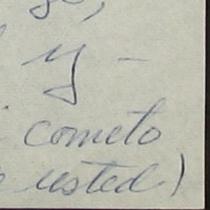 y -
cometo
usted)